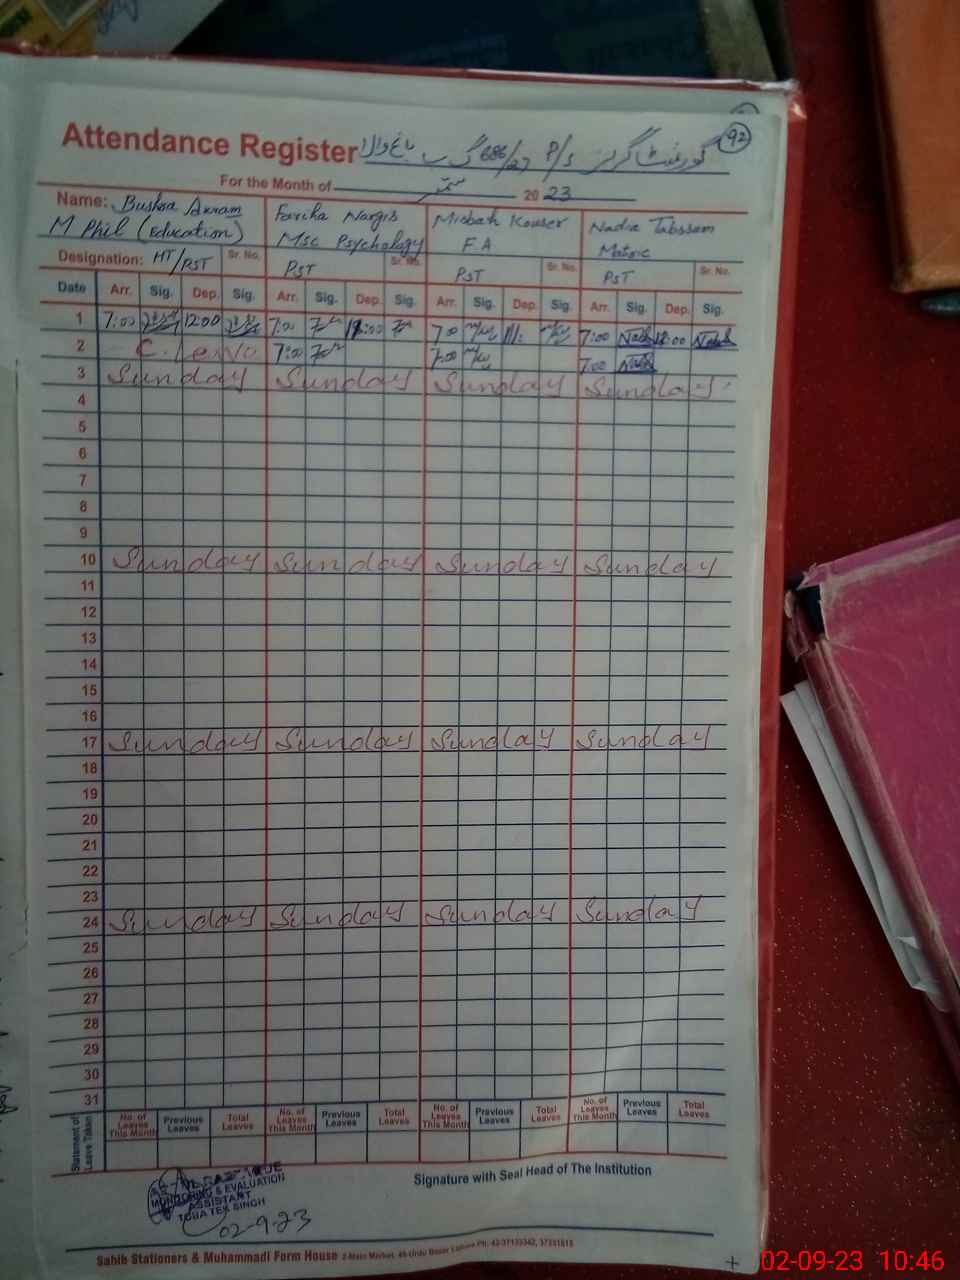 92
Attendance Register گورنمنٹ گرلز P/S 686/27 گ ب باغ والا
For the Month of ستمبر 2023
Name: Bushra Akram Fariha Nargis Misbah Kouser Nadia Tabssam
M Phil (Education) Msc Psychology F A Matric
Designation: HT/PST Sr. No. PST Sr. No. PST Sr. No. PST Sr. No.
Date Arr. Sig. Dep. Sig. Arr. Sig. Dep. Sig. Arr. Sig. Dep. Sig. Arr. Sig. Dep. Sig.
1 7:00 12:00 7:00 12:00 7:00 7:00 12:00
2 C. Leave 7:00 7:00 7:00
3 Sunday Sunday Sunday Sunday
4
5
6
7
8
9
10 Sunday Sunday Sunday Sunday
11
12
13
14
15
16
17 Sunday Sunday Sunday Sunday
18
19
20
21
22
23
24 Sunday Sunday Sunday Sunday
25
26
27
28
29
30
31
Statement of Leave Taken No. of Leaves This Month Previous Leaves Total Leaves No. of Leaves This Month Previous Leaves Total Leaves No. of Leaves This Month Previous Leaves Total Leaves No. of Leaves This Month Previous Leaves Total Leaves
Signature with Seal Head of The Institution
MONITORING & EVALUATION
ASSISTANT
TOBA TEK SINGH
02-9-23
Sahib Stationers & Muhammadi Form House 2-Main Market, 40-Urdu Bazar Lahore Ph: 42-37133342, 37231815
02-09-23 10:46